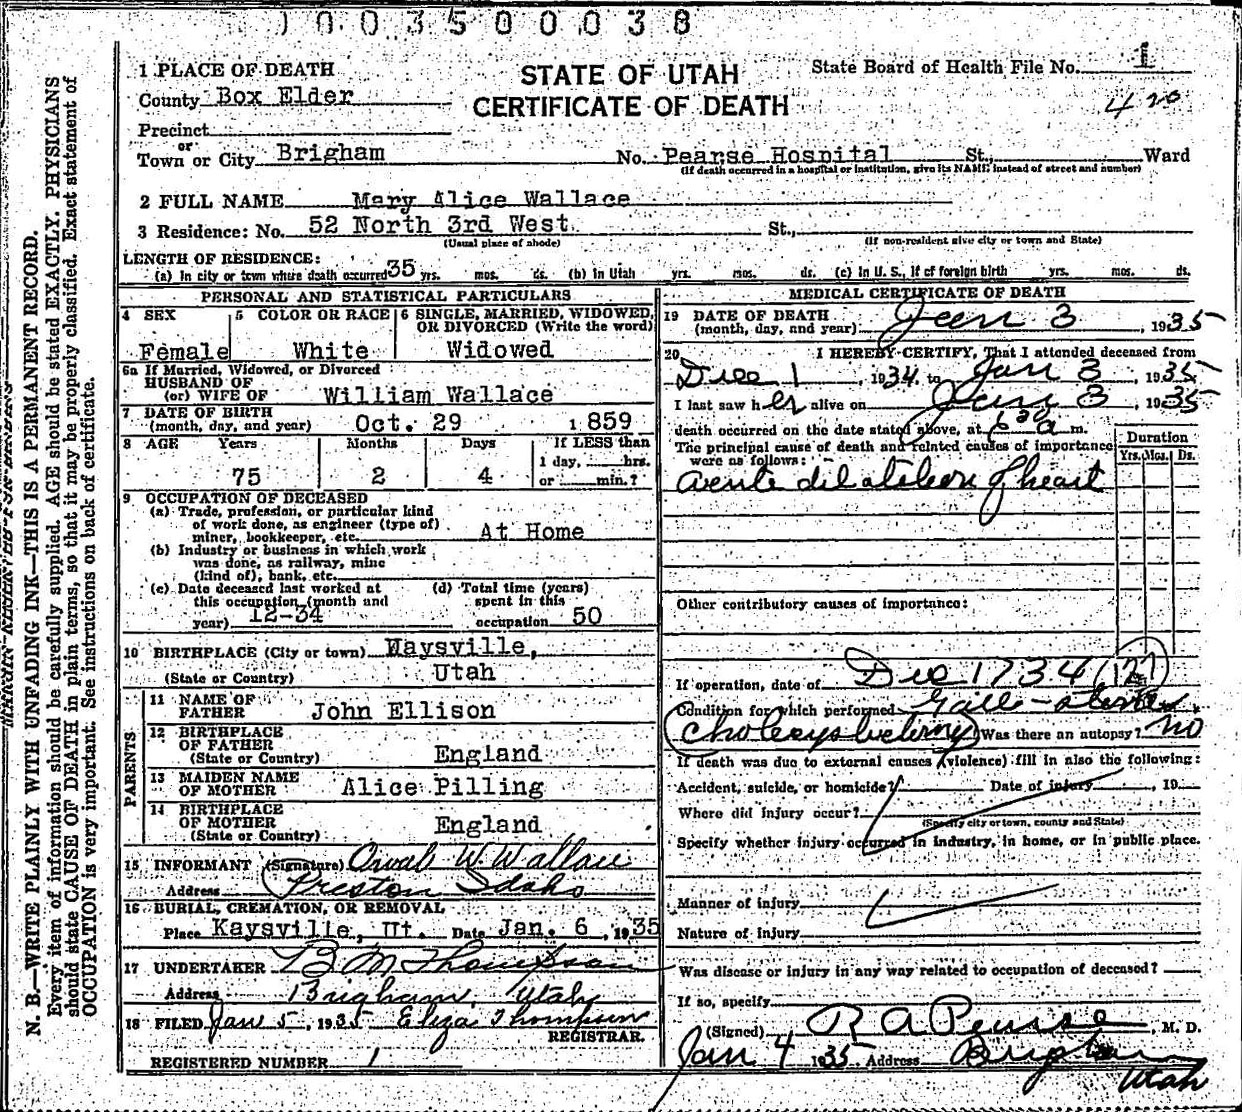 1003500038
1 PLACE OF DEATH
STATE OF UTAH
CERTIFICATE OF DEATH
State Board of Health File No. 1
420
County Box Elder
Precinct
or
Town or City Brigham No. Pearse Hospital St., Ward
(If death occurred in a hospital or institution, give its NAME instead of street and number)
2 FULL NAME Mary Alice Wallace
3 Residence: No. 52 North 3rd West. St.,
(Usual place of abode) (If non-resident give city or town and State)
LENGTH OF RESIDENCE:
(a) In city or town where death occurred 35 yrs. mos. ds. (b) In Utah yrs. mos. ds. (c) In U. S., if of foreign birth yrs. mos. ds.
PERSONAL AND STATISTICAL PARTICULARS
4 SEX 5 COLOR OR RACE 6 SINGLE, MARRIED, WIDOWED, OR DIVORCED (Write the word)
Female White Widowed
6a If Married, Widowed, or Divorced
HUSBAND OF
(or) WIFE OF William Wallace
7 DATE OF BIRTH
(month, day, and year) Oct. 29 1859
8 AGE Years Months Days If LESS than
1 day, hrs.
75 2 4 or min.?
9 OCCUPATION OF DECEASED
(a) Trade, profession, or particular kind
of work done, as engineer (type of)
miner, bookkeeper, etc. At Home
(b) Industry or business in which work
was done, as railway, mine
(kind of), bank, etc.
(c) Date deceased last worked at
this occupation (month and
year) 12-34
(d) Total time (years)
spent in this
occupation 50
10 BIRTHPLACE (City or town) Waysville,
(State or Country) Utah
PARENTS
11 NAME OF
FATHER John Ellison
12 BIRTHPLACE
OF FATHER
(State or Country) England
13 MAIDEN NAME
OF MOTHER Alice Pilling
14 BIRTHPLACE
OF MOTHER
(State or Country) England
15 INFORMANT (Signature) Orval W. Wallace
Address Preston Idaho
16 BURIAL, CREMATION, OR REMOVAL
Place Kaysville, Ut. Date Jan. 6, 1935
17 UNDERTAKER B M Thompson
Address Brigham, Utah
18 FILED Jan 5, 1935 Eliza Thompson
REGISTRAR.
REGISTERED NUMBER 1
MEDICAL CERTIFICATE OF DEATH
19 DATE OF DEATH
(month, day, and year) Jan 3, 1935
20 I HEREBY CERTIFY, That I attended deceased from
Dec 1, 1934, to Jan 3, 1935
I last saw her alive on Jan 3, 1935
death occurred on the date stated above, at a m.
The principal cause of death and related causes of importance
were as follows:
Duration
Yrs. Mos. Ds.
acute dilatation of heart
Other contributory causes of importance:
If operation, date of Dec 1734 (127)
Condition for which performed Gall-stones
Cholecystectomy Was there an autopsy? no
If death was due to external causes (violence) fill in also the following:
Accident, suicide, or homicide? Date of injury , 19
Where did injury occur?
(Specify city or town, county and State)
Specify whether injury occurred in industry, in home, or in public place.
Manner of injury
Nature of injury
Was disease or injury in any way related to occupation of deceased?
If so, specify
(Signed) R A Pearse, M. D.
Jan 4 1935 Address Brigham
Utah
N. B.—WRITE PLAINLY WITH UNFADING INK—THIS IS A PERMANENT RECORD.
Every item of information should be carefully supplied. AGE should be stated EXACTLY. PHYSICIANS
should state CAUSE OF DEATH in plain terms, so that it may be properly classified. Exact statement of
OCCUPATION is very important. See instructions on back of certificate.
MARGIN RESERVED FOR BINDING